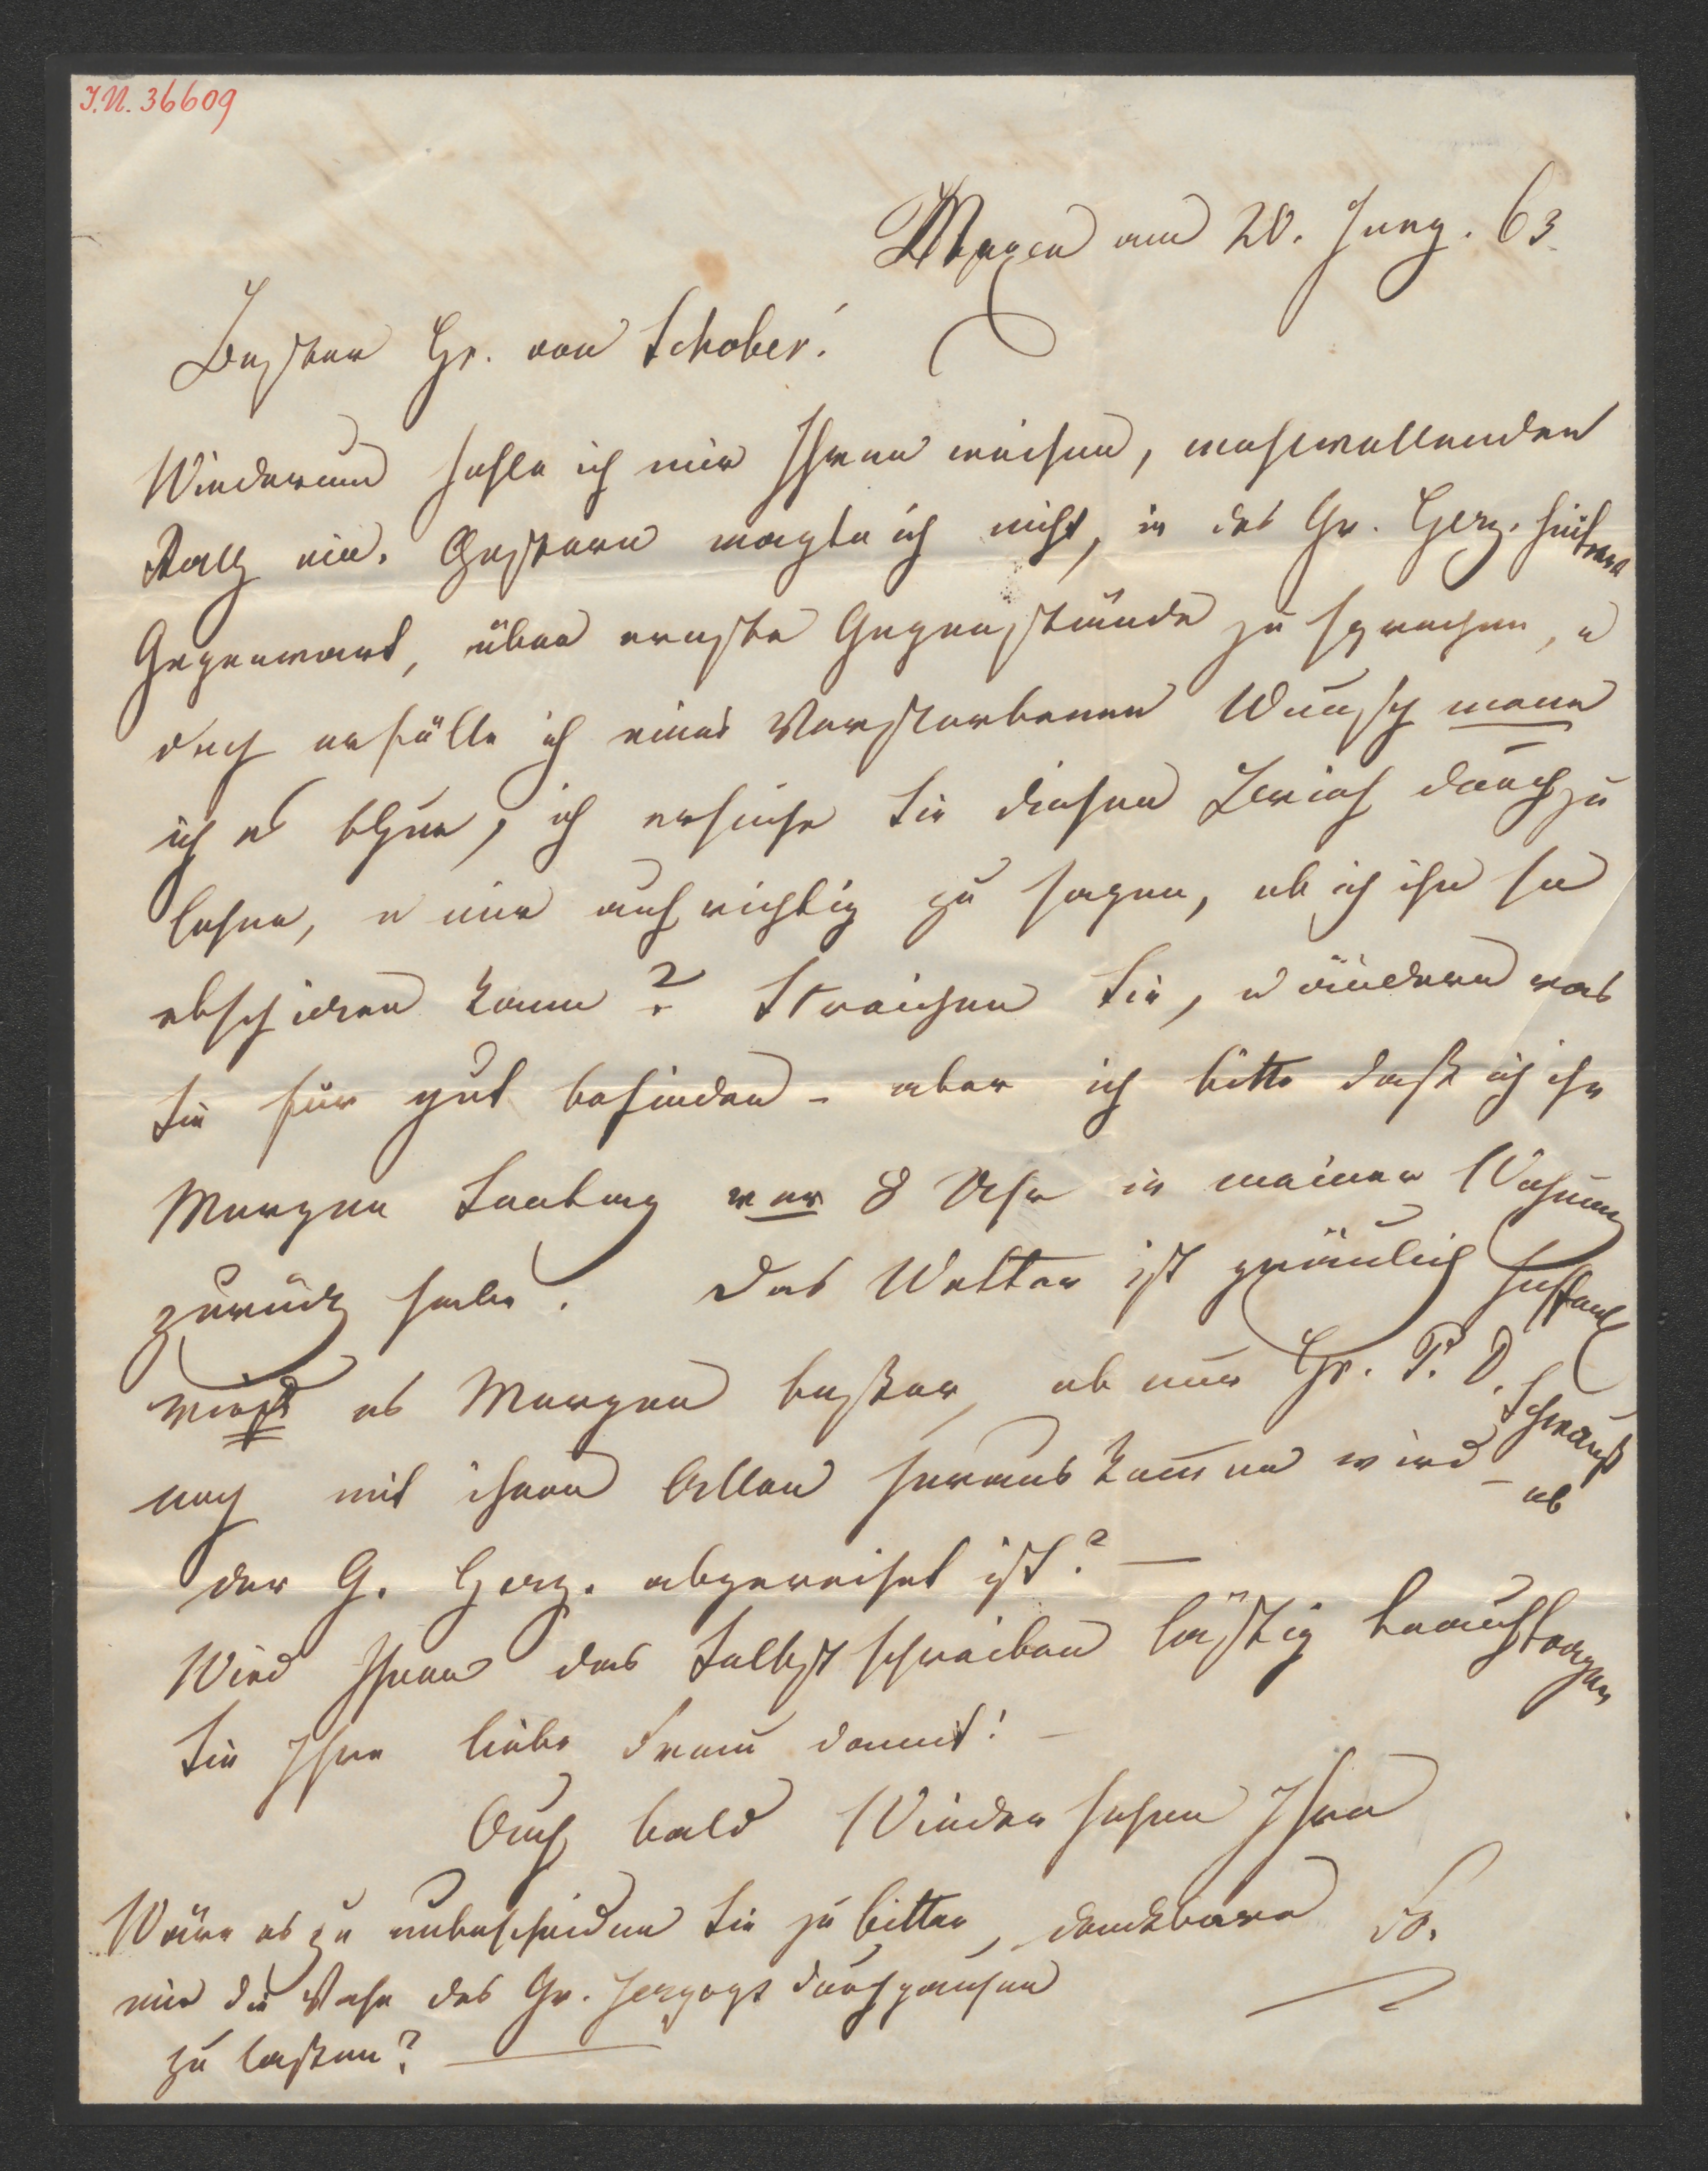 I.N. 36609
Maxen am 20. Juny. 63.
Bester Hr. von Schober!
Wiederum hohle ich mir Ihren weisen, wohlwollenden
Rath ein. Gestern wagte ich nicht, in des Gr. Herz.
Gegenwart, über ernste Gegenstände zu sprechen, u
doch erfülle ich eines Verstorbenen Wunsch wenn
ich es thue, ich ersuche Sie diesen Brief durchzu
lesen, u mir aufrichtig zu sagen, ob ich ihn so
abschicken kann? Streichen Sie, u ändern was
Sie für gut befinden - aber ich bitte daß ich ihn
Morgen Sontag vor 8 Uhr in meiner Wohnung
zurück habe. Das Wetter ist gräulich
wird es Morgen besser, ob nur Hr. P. D.
noch mit ihren Allen heraus kommen wird - ob
der G. Herz. abgereiset ist? —
Wird Ihnen das Selbst schreiben lästig beauftragen
Sie Ihre liebe Frau damit! -
Auf bald Wiedersehen Ihre
Wäre es zu unbescheiden Sie zu bitten, dankbare
mir die Vase des Gr. Herzogs
zu lassen? —